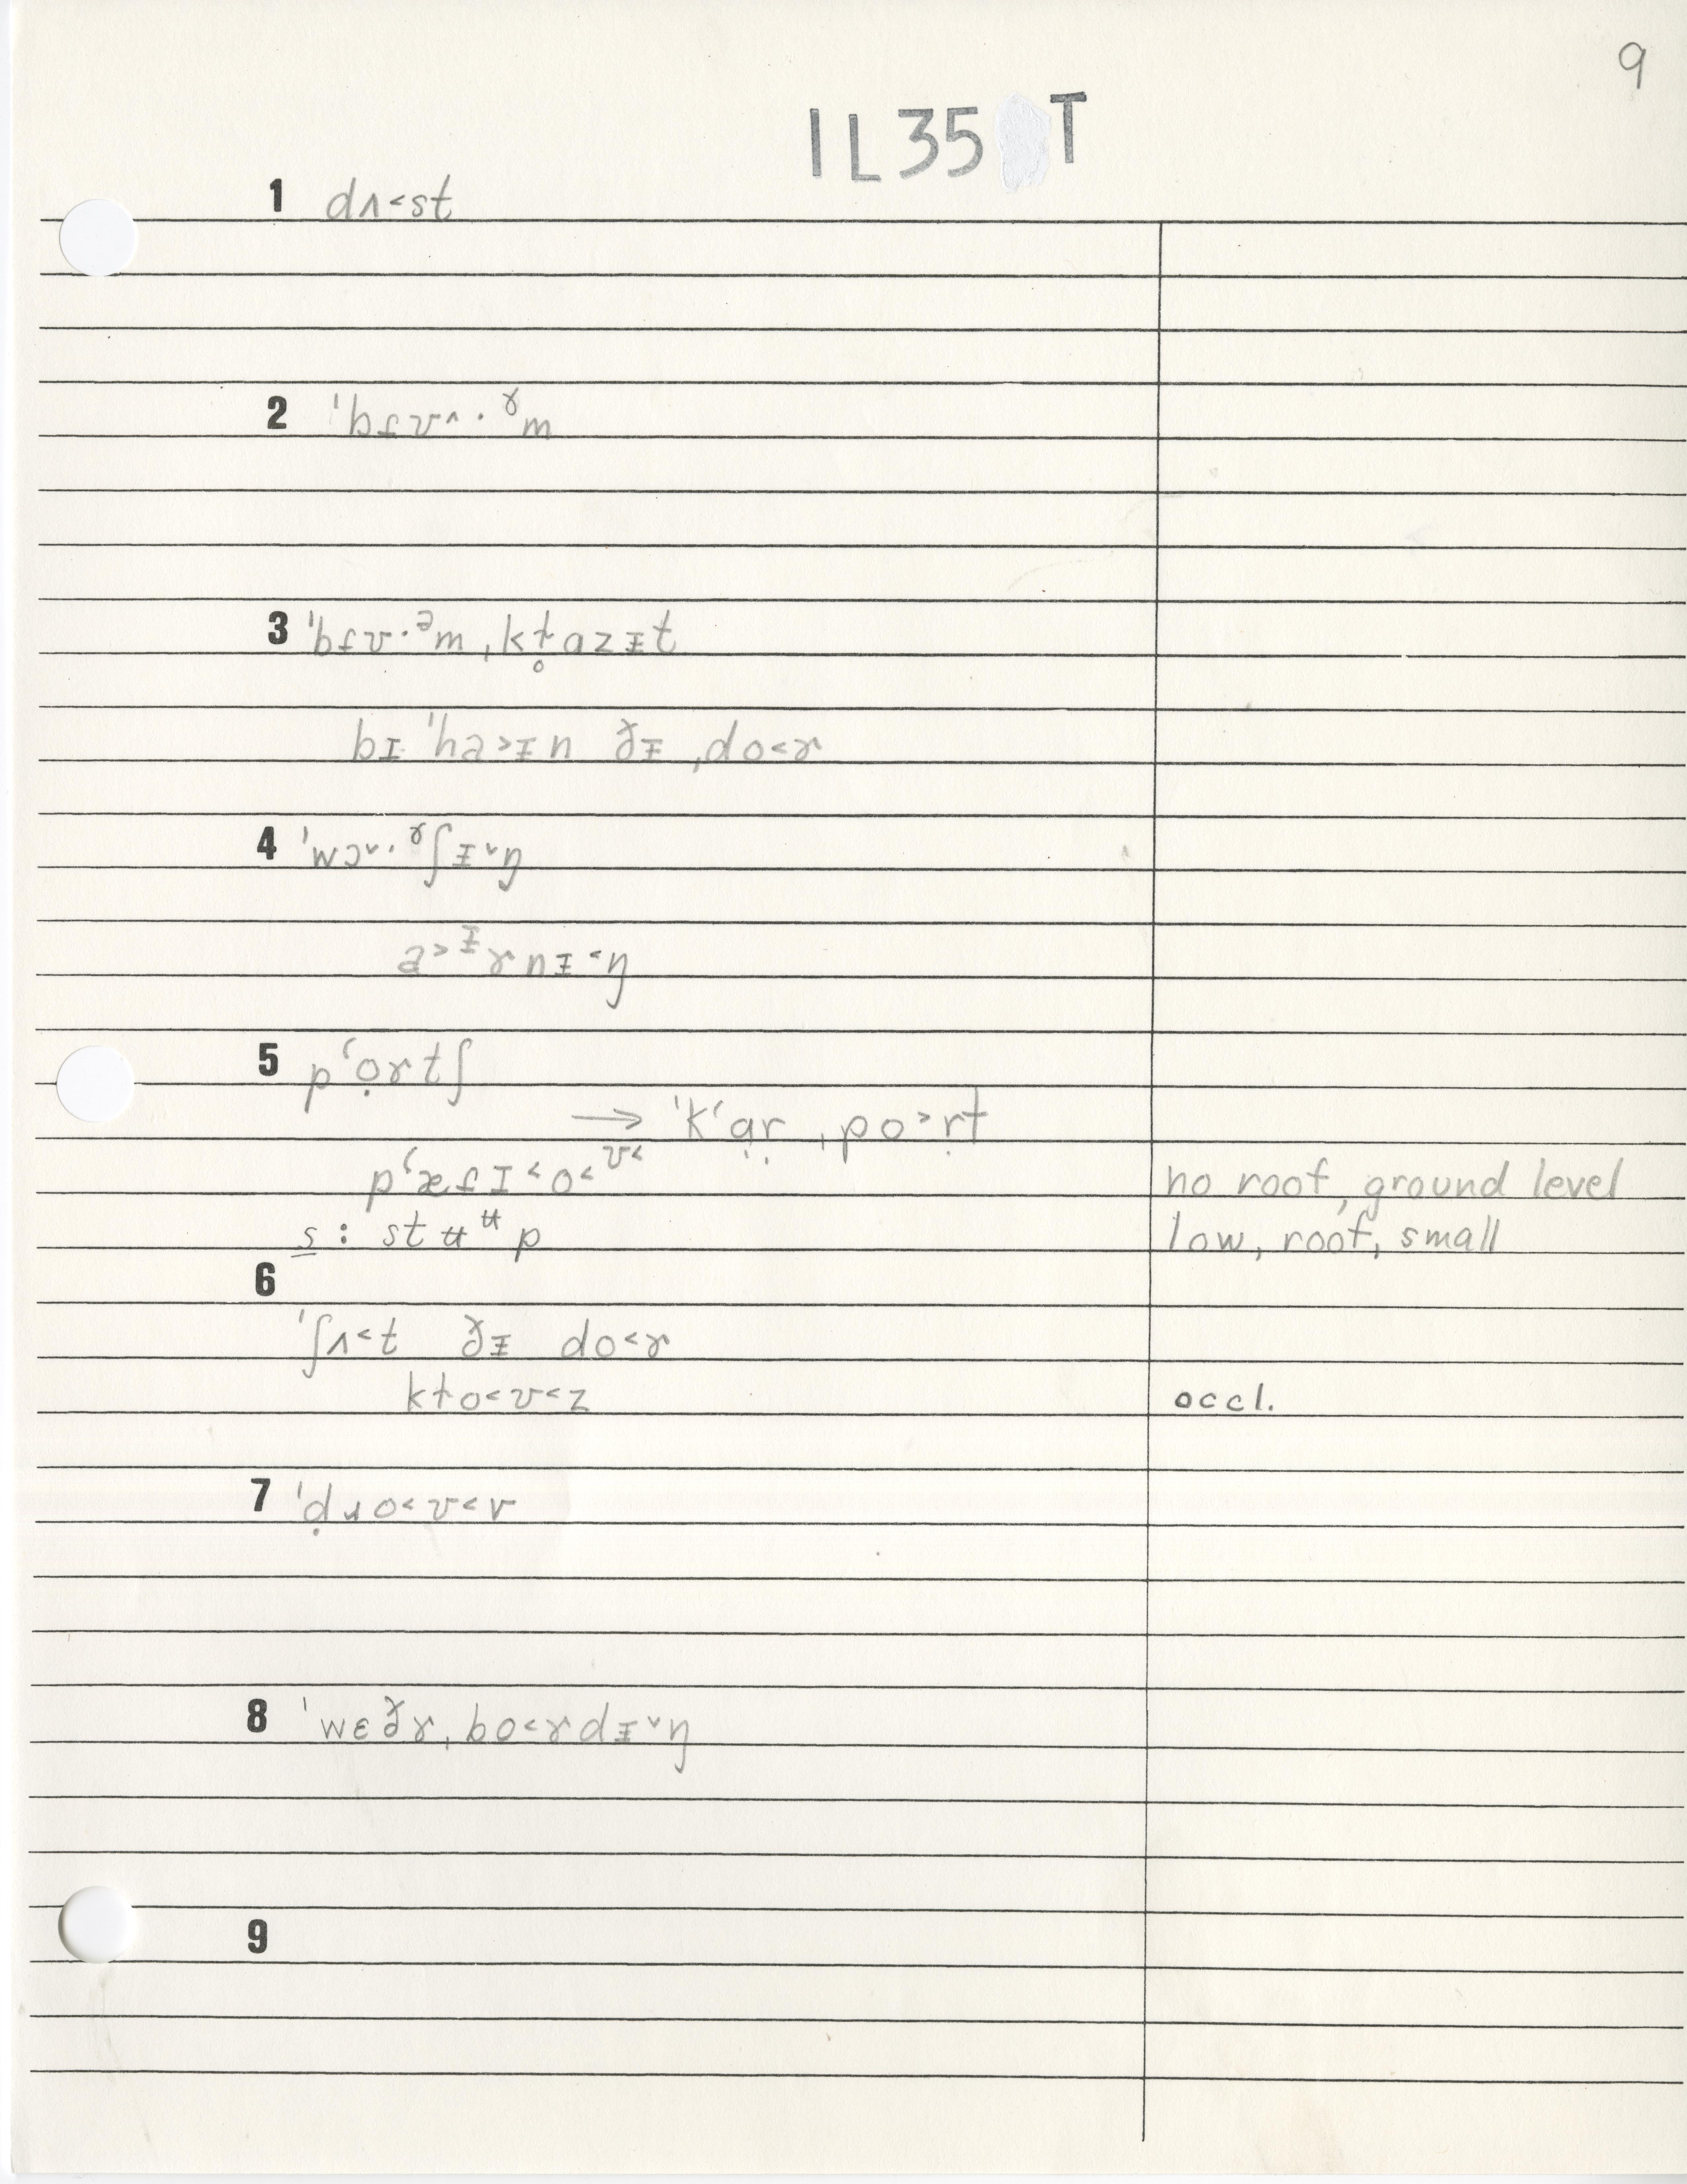 9
IL35 T
1 dʌ˂st
2 ˈbɾʊ˄·ɤm
3 ˈbɾʊ·ᵊm ˌkɫ̥azᵻt
bɪ ˈha˃ᵻn ðᵻ ˌdo˂ɚ
4 ˈwɔ˅·ɚʃᵻ˅ŋ
a˃ᵻɚnᵻ˂ŋ
5 pʻọɚtʃ
→ ˈkʻạṛ ˌpo˃ṛt
pʻæɾɪ˂o˂ʊ˂
no roof, ground level
s: stʉʉp
low, roof, small
6
ˈʃʌ˂t ðᵻ do˂ɚ
kɫo˂ʊ˂z
occl.
7 ˈḍɹo˂ʊ˂v
8 ˈwɛðɚˌbo˂ɚdᵻ˅ŋ
9